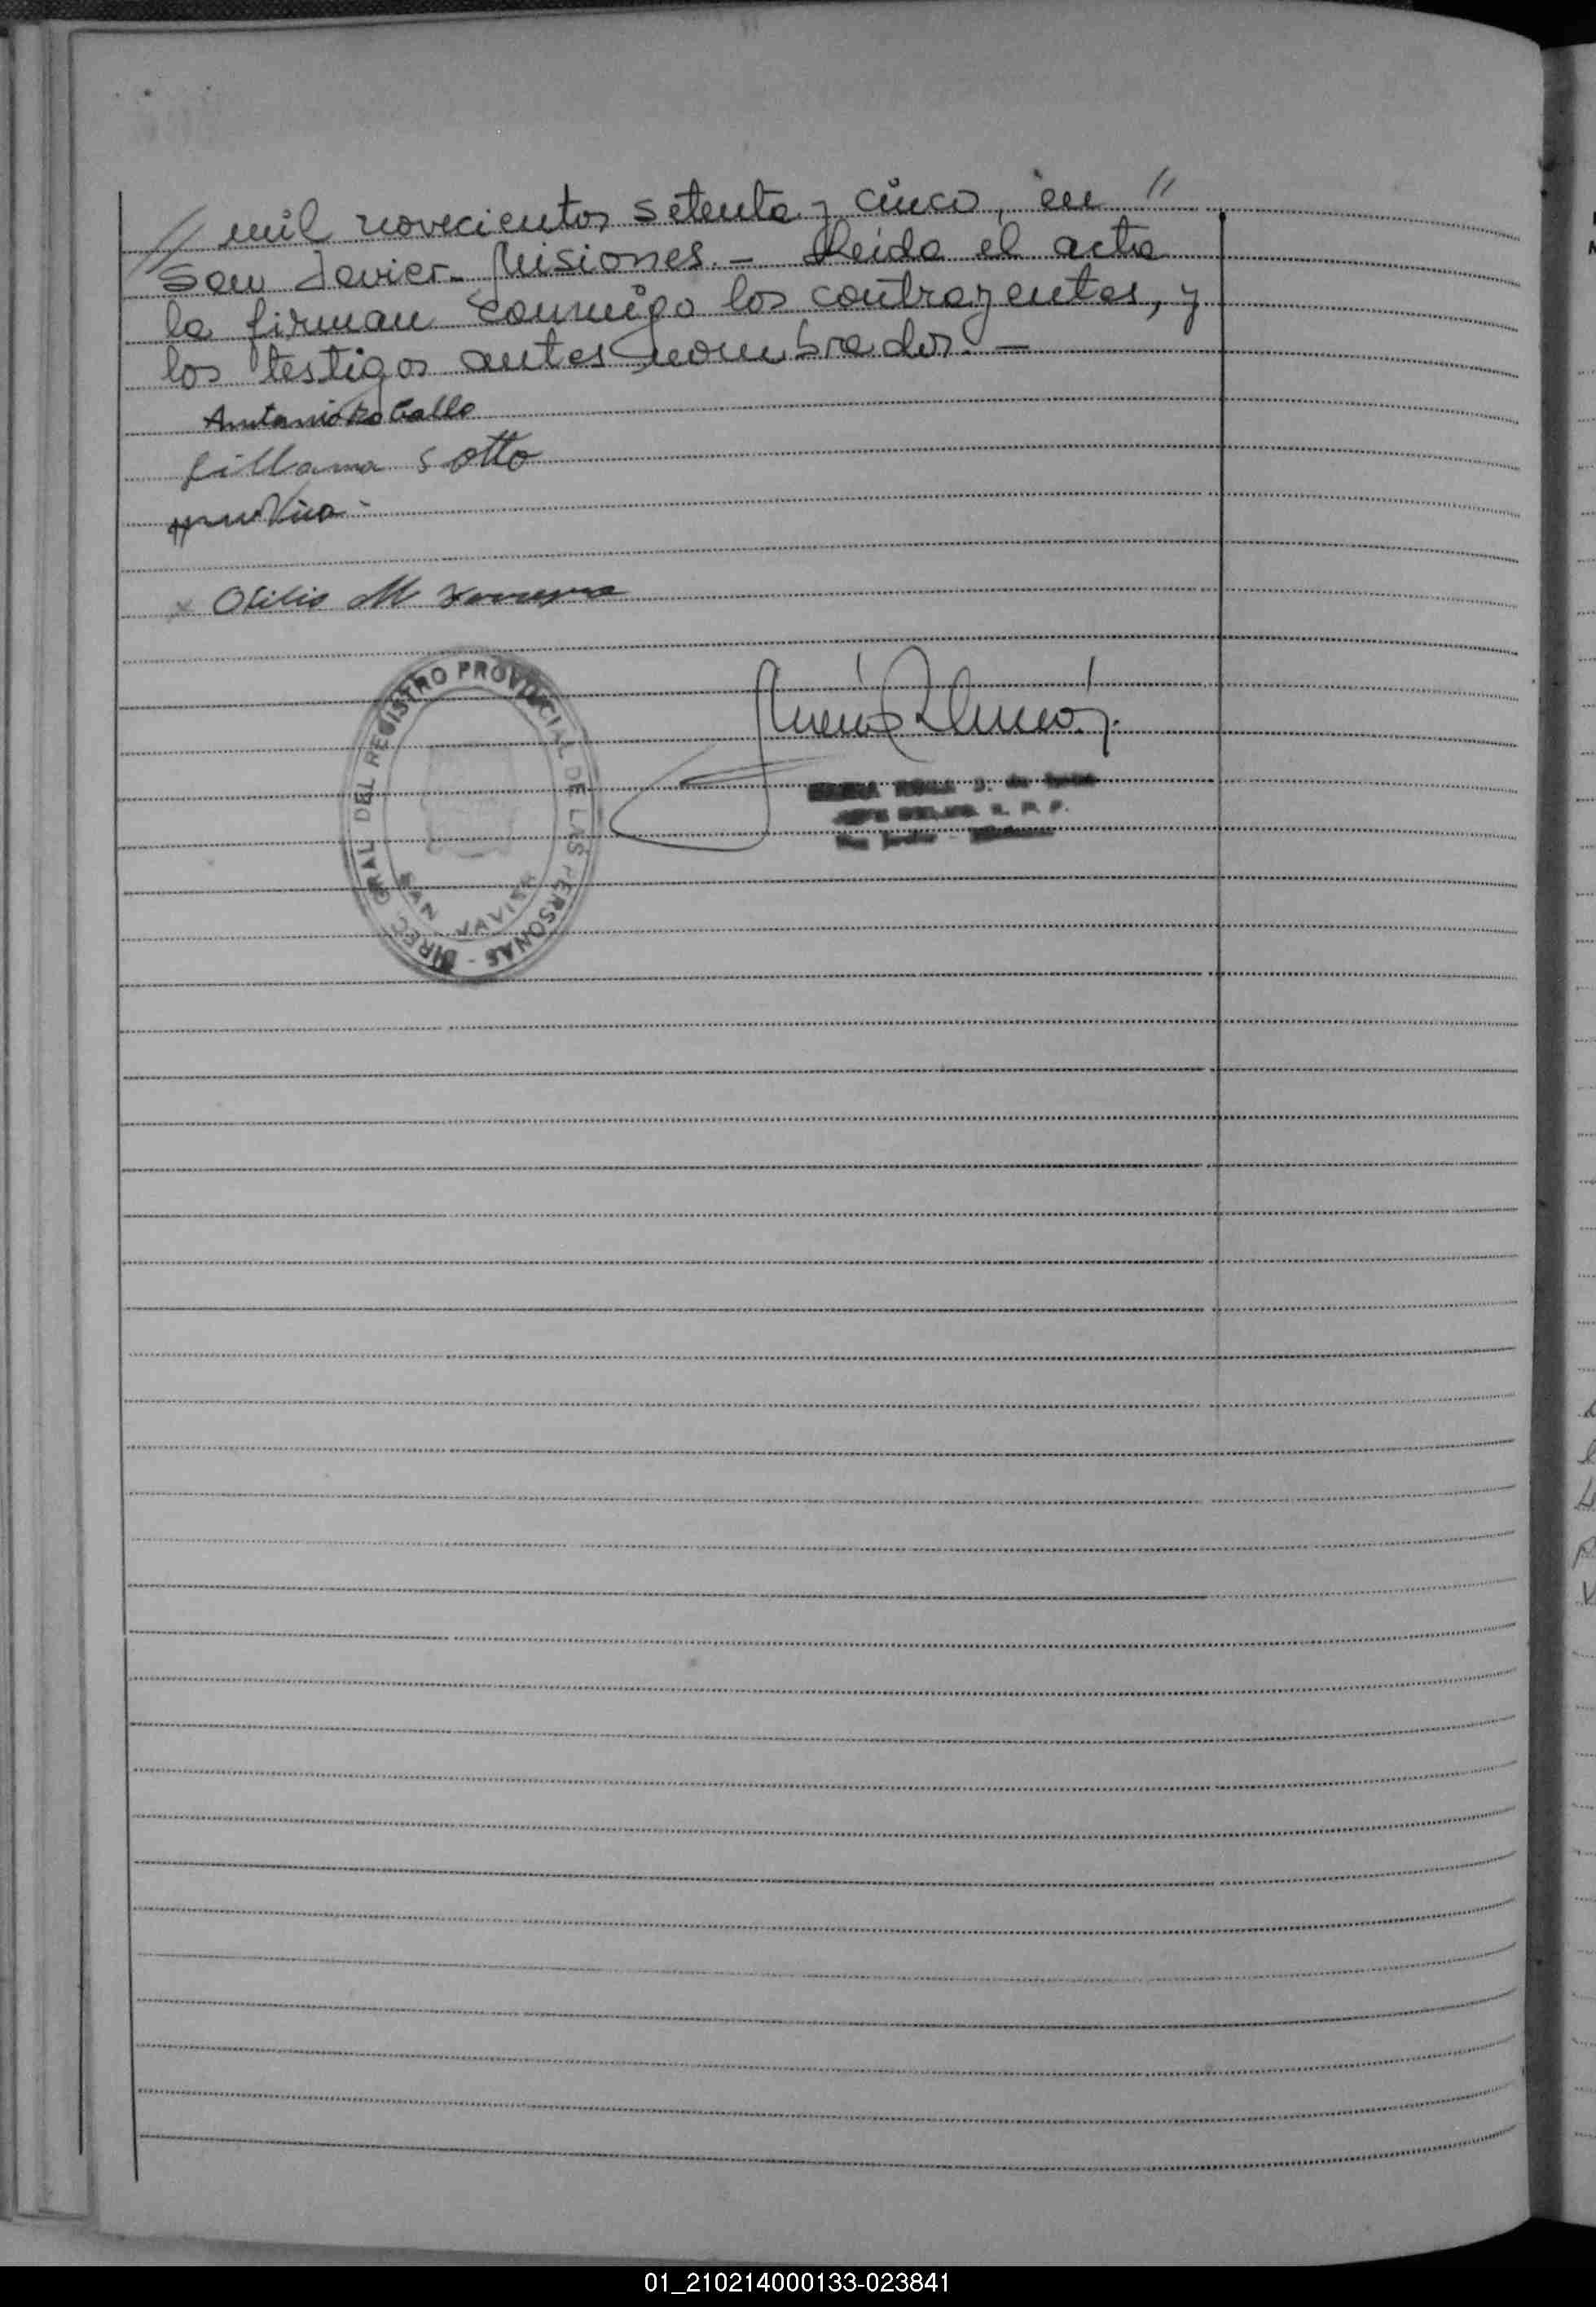 // mil novecientos setenta y cinco, en //
San Javier - Misiones. - Leída el acta
la firman conmigo los contrayentes, y
los testigos antes nombrados. -
Antonio
Lillana Sotto
Otilio M
DIREC. GRAL DEL REGISTRO PROVINCIAL DE LAS PERSONAS -
SAN JAVIER
R. P. P.
San Javier - Misiones
01_210214000133-023841